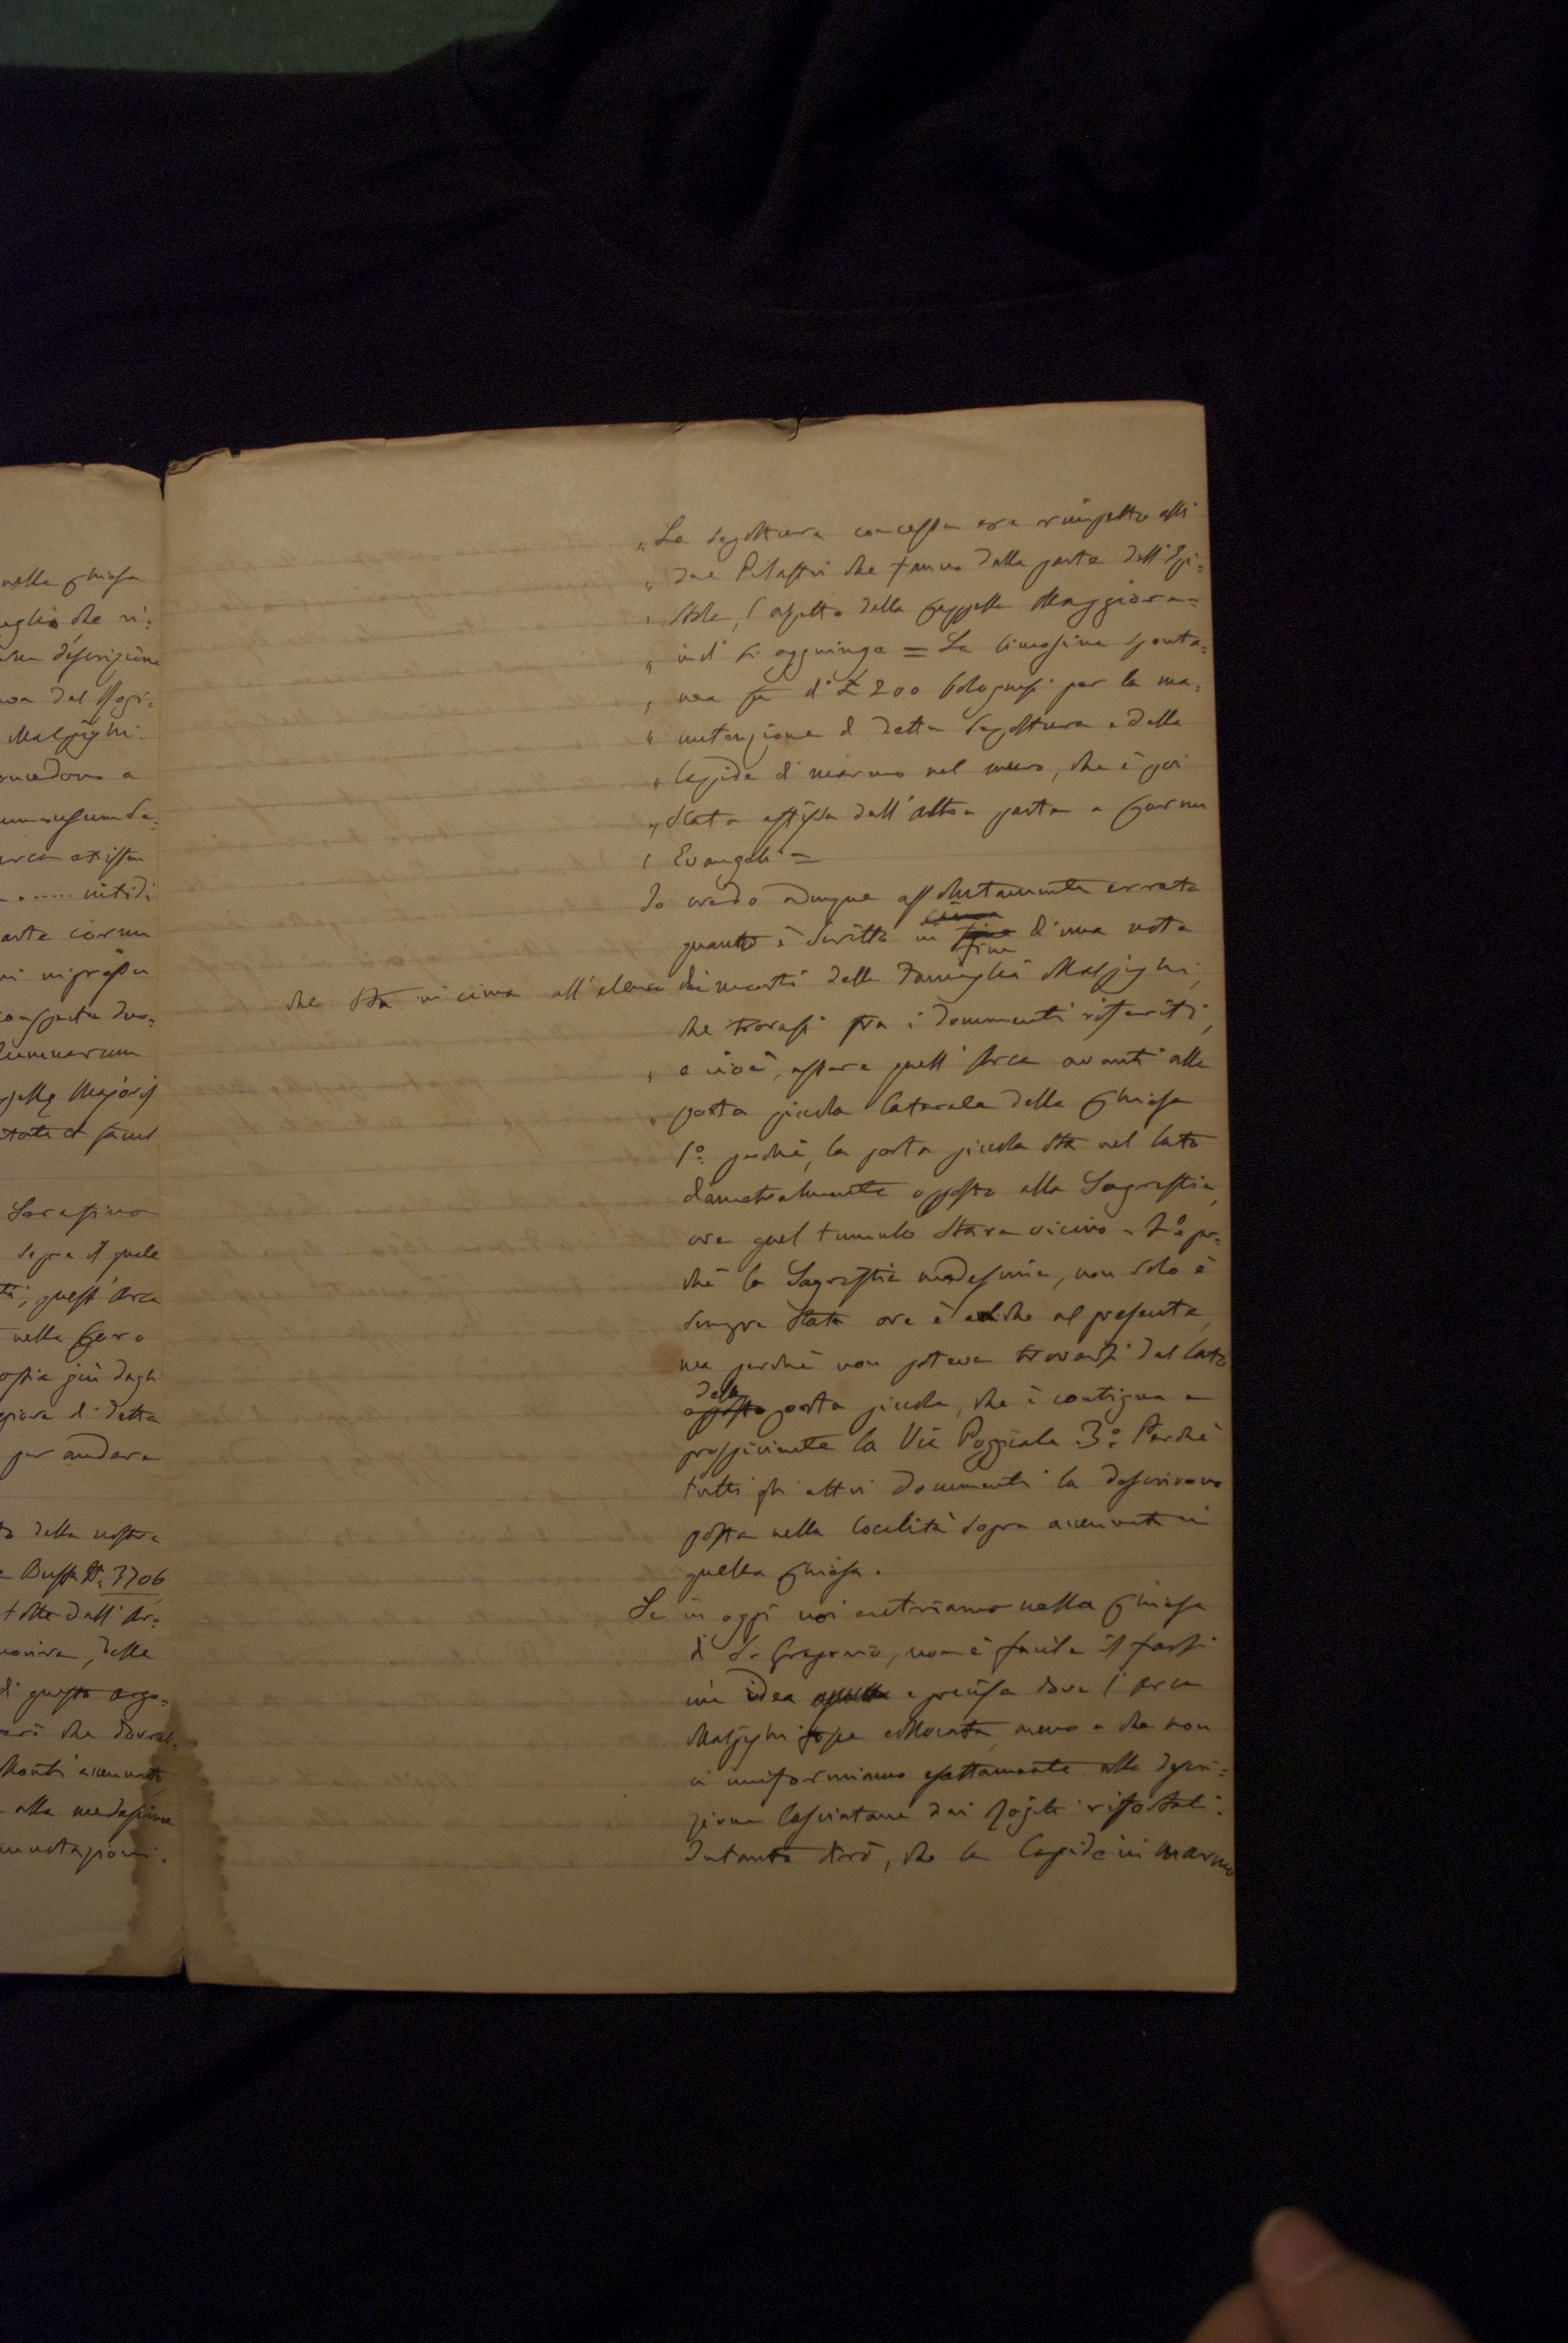 nella Chiesa
uglia che ri:
descrizione
del Rogi:
Malpighi
concedono a
arca existen
...... nitidi
parte cornu
in ingressu
luminarum
Majoris
Serafino
sopra il quale
quest'Arca
nella Cera
ossia più dagli
di detta
per andare
della nostra
Busta N. 3706
tolte dall'Ar:
delle
di questo argo:
che dovreb:
Monti accennato
alla medesima
annotazioni.
„ La sepoltura concessa era rimpetto alli
„ due Pilastri che fanno dalla parte dell'Epi:
„ stola, l'aspetto della Cappella Maggiore =
„ indi si aggiunge = La limosina sponta:
„ nea fu di £ 200 bolognesi per la ma:
„ nutenzione di detta Sepoltura e della
„ lapide di marmo nel muro, che è poi
„ stata affissa dall'altra parte a Cornu
„ Evangeli =
Io credo adunque assolutamente errata
quanto è scritto in fine di una nota
che sta in cima all'elenco dei morti della Famiglia Malpighi,
che trovasi fra i documenti riferiti,
„ e cioè, essere quell'Arca avanti alla
„ porta piccola laterale della Chiesa
1º perchè, la porta piccola sta nel lato
diametralmente opposto alla Sagrestia,
ove quel tumulo stava vicino - 2º per:
chè la Sagrestia medesima, non solo è
sempre stata ove è anche al presente,
ma perchè non poteva trovarsi dal lato
della porta piccola, che è contigua e
prospiciente la Via Poggiale 3º Perchè
tutti gli altri documenti la descrivono
posta nella località sopra accennata in
quella Chiesa.
Se in oggi noi entriamo nella Chiesa
di S. Gregorio, non è facile il farsi
un'idea precisa dove l'arca
Malpighi fosse collocata, meno a che non
ci uniformiamo esattamente alla descri:
zione lasciatane dai Rogiti riportati.
Intanto dirò, che la Lapide in marmo